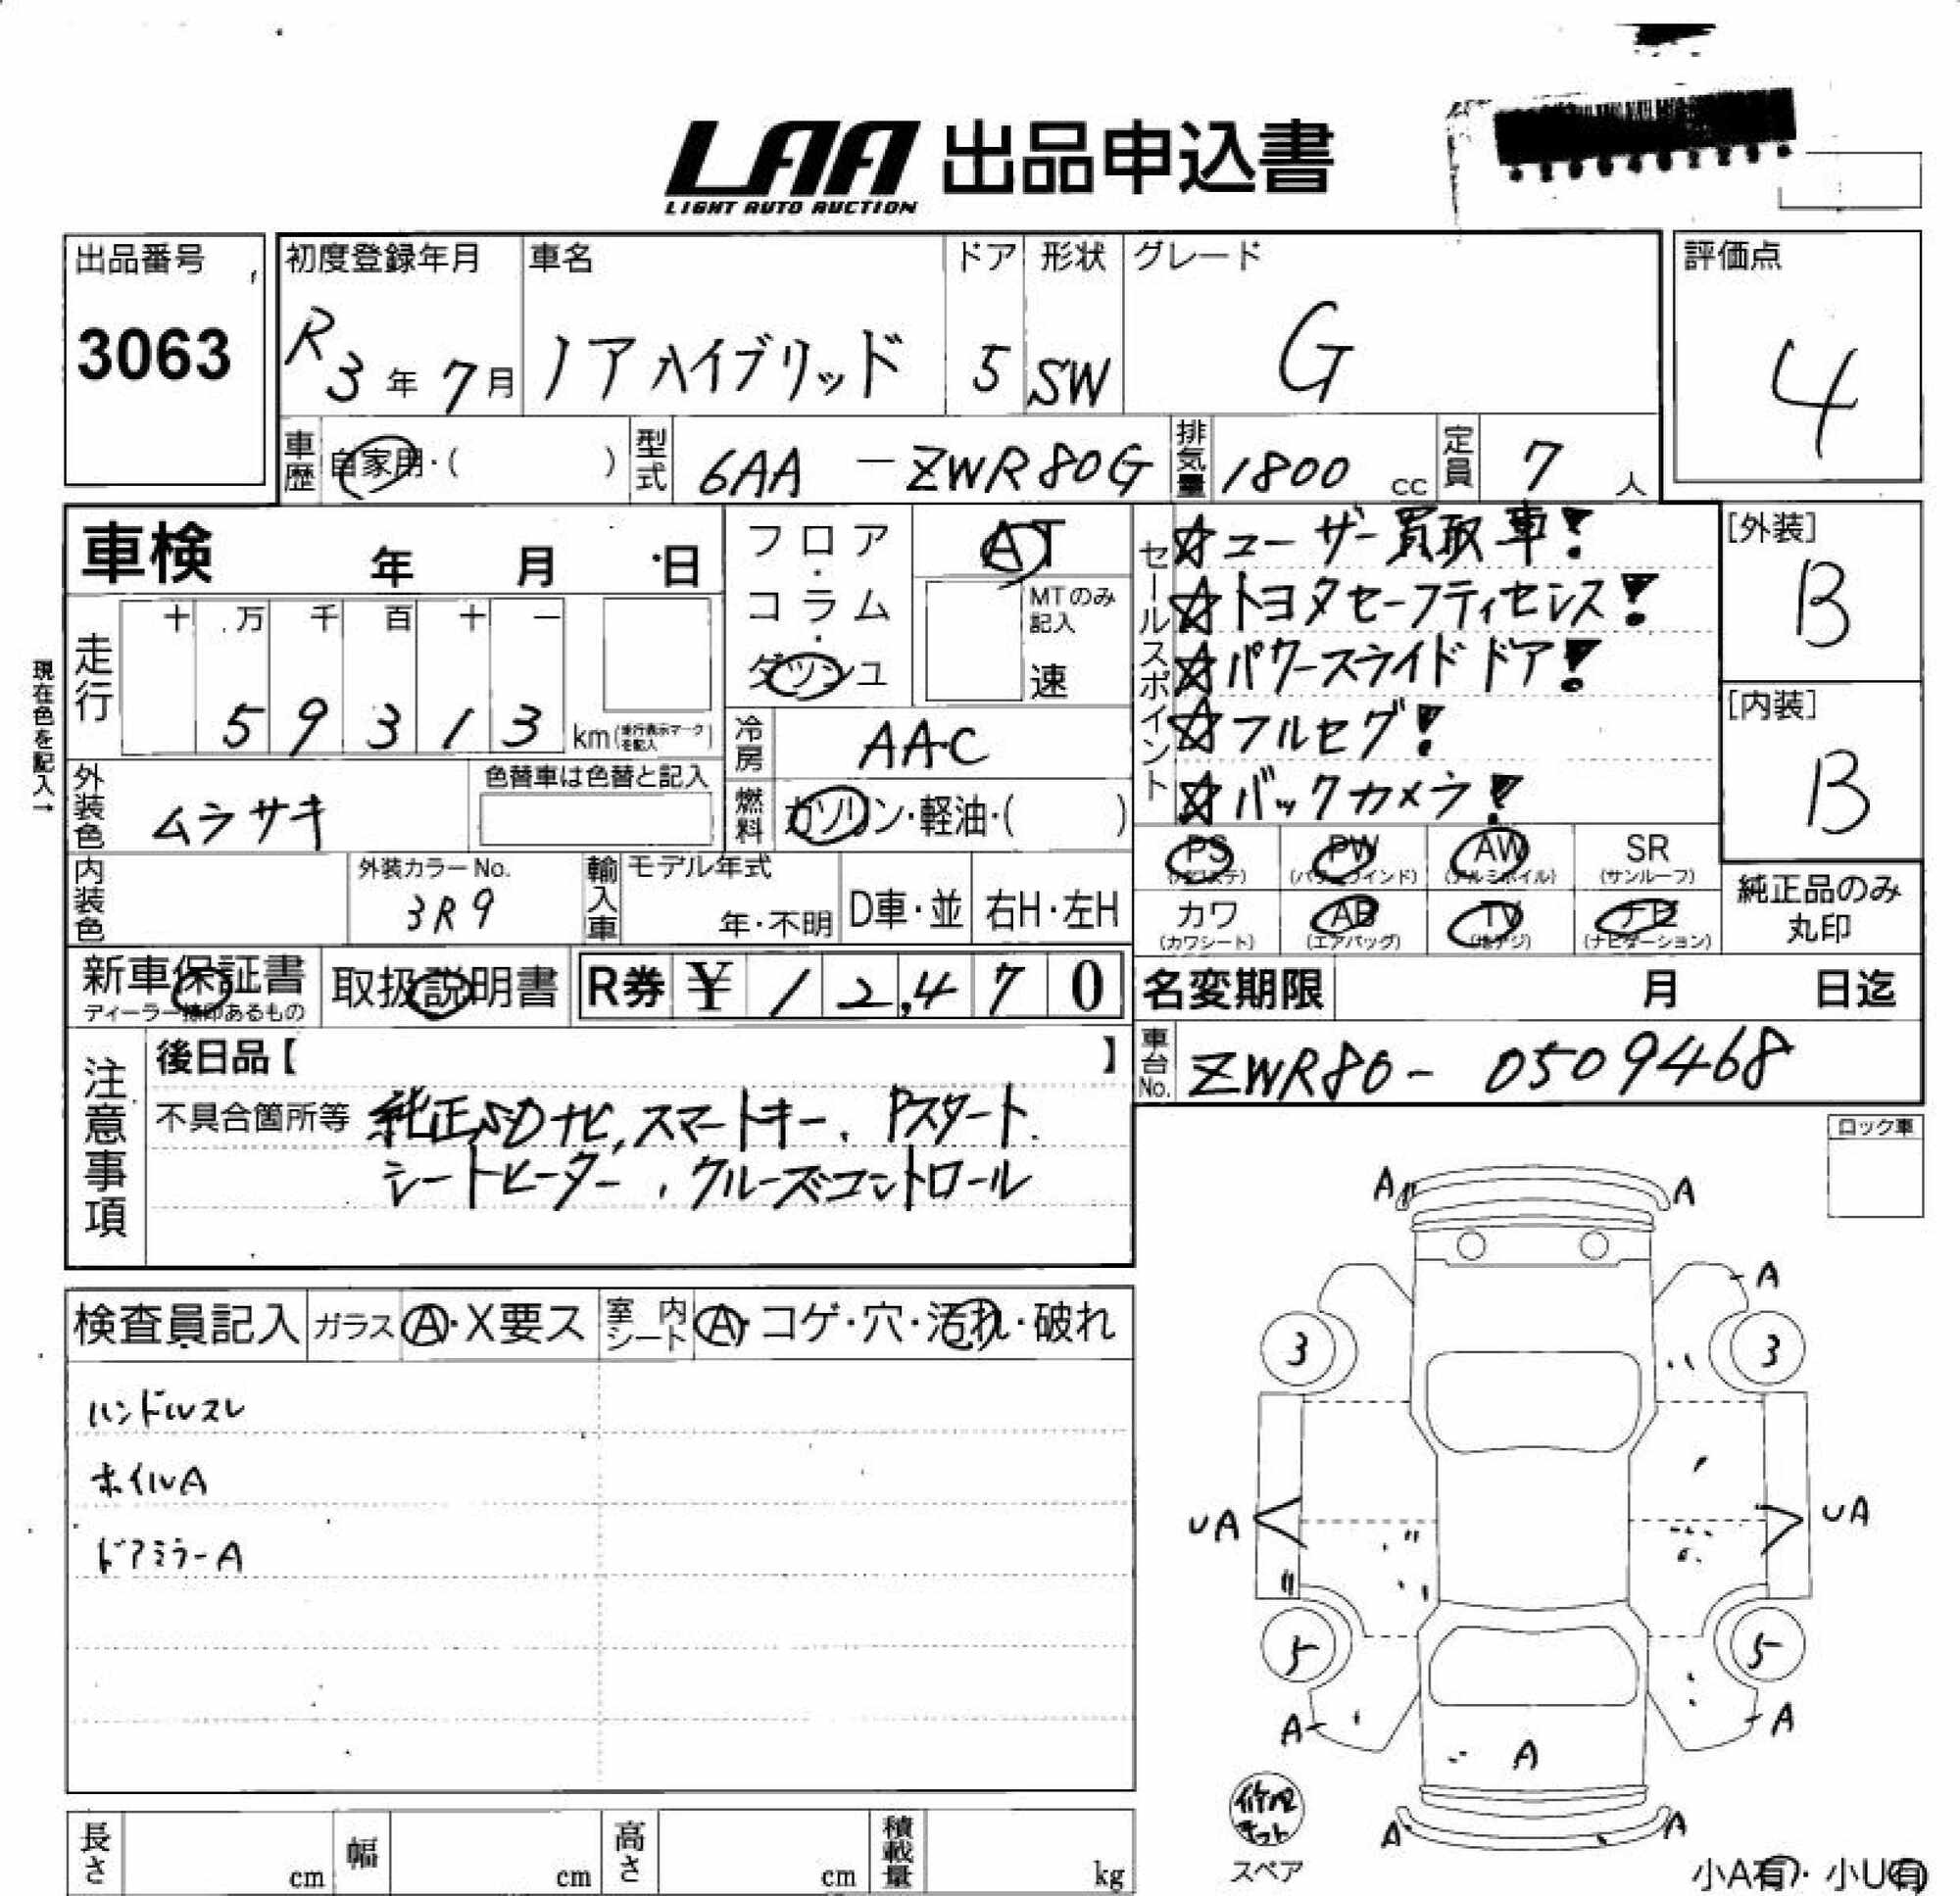 LAA 出品申込書
LIGHT AUTO AUCTION
出品番号
3063
初度登録年月
R3年7月
車名
ノアハイブリッド
ドア
5
形状
SW
グレード
G
評価点
4
車歴
自家用・(　　)
型式
6AA - ZWR80G
排気量
1800 cc
定員
7 人
車検　年　月　日
フロア・コラム・ダッシュ
AT
MTのみ記入
速
セールスポイント
☆ユーザー買取車!
☆トヨタセーフティセンス!
☆パワースライドドア!
☆フルセグ!
☆バックカメラ!
[外装]
B
[内装]
B
現在色を記入→
走行
十 万 千 百 十 一
5 9 3 1 3
km (走行表示マークを記入)
冷房
AAC
燃料
ガソリン・軽油・(　　)
外装色
ムラサキ
色替車は色替と記入
内装色
外装カラーNo.
3R9
輸入車
モデル年式
年・不明
D車・並
右H・左H
PS (パワステ)
PW (パワーウインド)
AW (アルミホイル)
SR (サンルーフ)
カワ (カワシート)
AB (エアバッグ)
TV (地デジ)
ナビ (ナビゲーション)
純正品のみ丸印
新車保証書
ディーラー捺印あるもの
取扱説明書
R券 ¥12,470
名変期限　月　日迄
車台No.
ZWR80-0509468
注意事項
後日品【　　】
不具合箇所等 純正SDナビ,スマートキー、Pスタート、
シートヒーター、クルーズコントロール
ロック車
検査員記入
ガラス Ⓐ・X要ス
室内シート Ⓐ・コゲ・穴・汚れ・破れ
ハンドルスレ
ホイルA
ドアミラーA
A A
A
3 3
UA UA
5 5
A A
A
A A
修理キット
スペア
小A有・小U有
長さ cm
幅 cm
高さ cm
積載量 kg